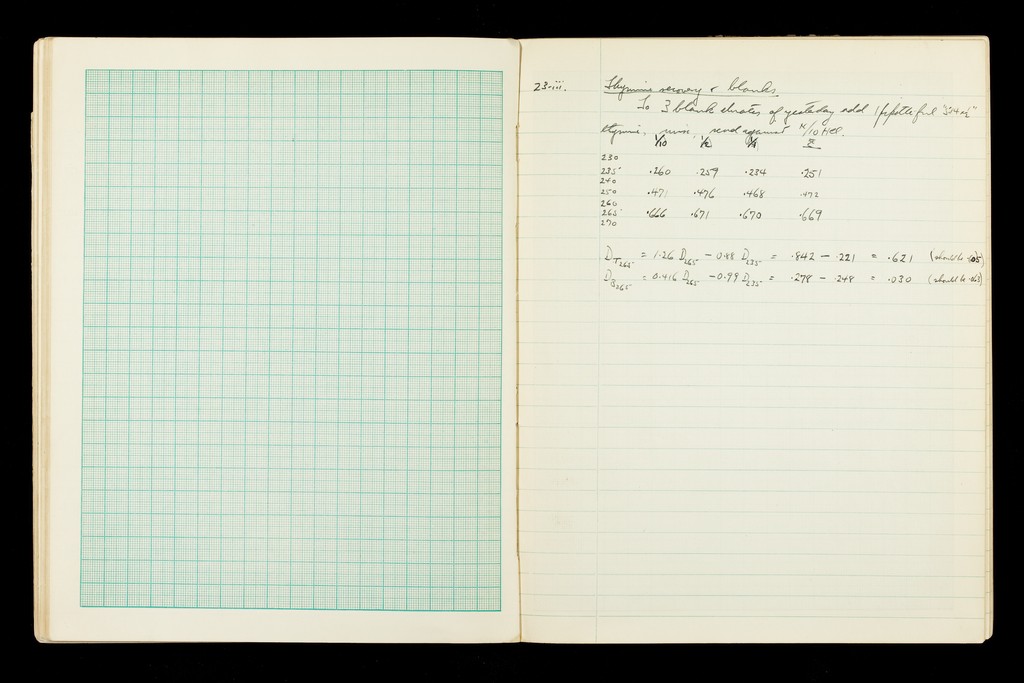 23·iii. Thymine recovery & blanks
To 3 blank eluates of yesterday add 1 pipette full
thymine, mix, read against N/10 HCl.
1/10 x̄
230
235 ·260 ·259 ·234 ·251
240
250 ·471 ·476 ·468 ·472
260
265 ·666 ·671 ·670 ·669
270
D_T265 = 1·26 D265 − 0·88 D235 = ·842 − ·221 = ·621 (should be ·605)
D_B265 = 0·416 D265 − 0·99 D235 = ·278 − ·248 = ·030 (should be ·063)